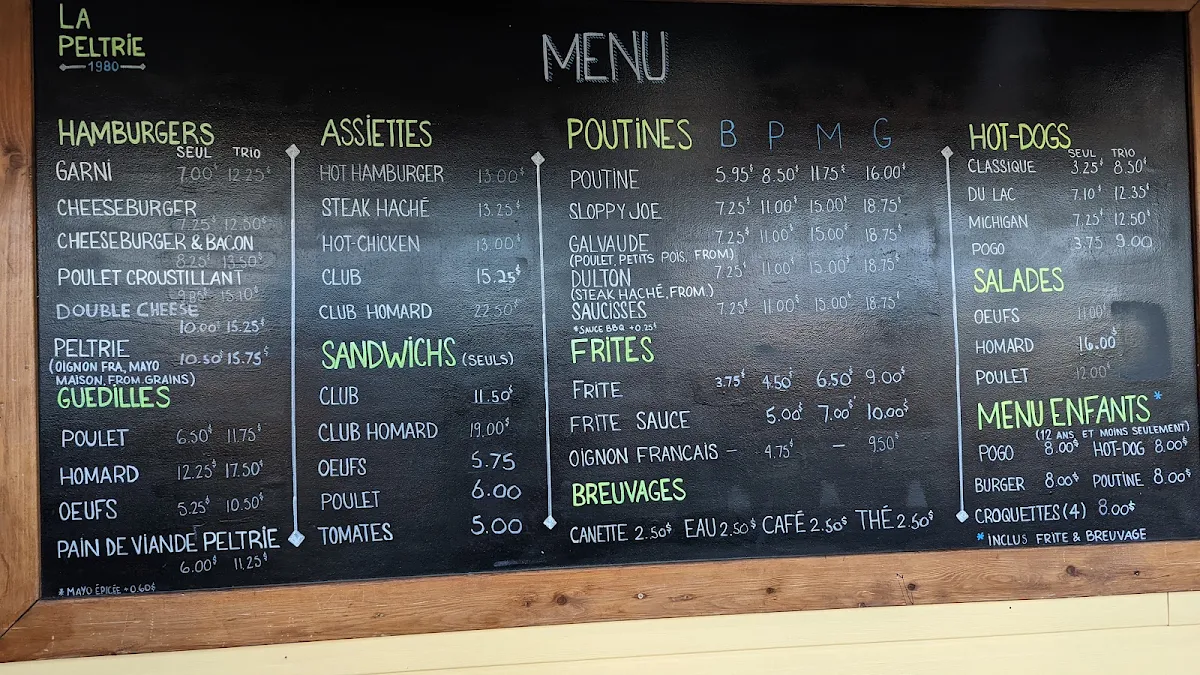 LA
PELTRIE
1980
MENU
HAMBURGERS
SEUL TRIO
GARNI 7.00$ 12.25$
CHEESEBURGER
7.25$ 12.50$
CHEESEBURGER & BACON
8.25$ 13.50$
POULET CROUSTILLANT
9.85$ 15.10$
DOUBLE CHEESE
10.00$ 15.25$
PELTRIE 10.50$ 15.75$
(OIGNON FRA, MAYO
MAISON, FROM.GRAINS)
GUEDILLES
POULET 6.50$ 11.75$
HOMARD 12.25$ 17.50$
OEUFS 5.25$ 10.50$
PAIN DE VIANDE PELTRIE
6.00$ 11.25$
* MAYO ÉPICÉE + 0.60$
ASSIETTES
HOT HAMBURGER 13.00$
STEAK HACHÉ 13.25$
HOT-CHICKEN 13.00$
CLUB 15.25$
CLUB HOMARD 22.50$
SANDWICHS (SEULS)
CLUB 11.50$
CLUB HOMARD 19.00$
OEUFS 5.75
POULET 6.00
TOMATES 5.00
POUTINES B P M G
POUTINE 5.95$ 8.50$ 11.75$ 16.00$
SLOPPY JOE 7.25$ 11.00$ 15.00$ 18.75$
GALVAUDE 7.25$ 11.00$ 15.00$ 18.75$
(POULET, PETITS POIS, FROM)
DULTON 7.25$ 11.00$ 15.00$ 18.75$
(STEAK HACHÉ, FROM.)
SAUCISSES 7.25$ 11.00$ 15.00$ 18.75$
*SAUCE BBQ +0.25$
FRITES
FRITE 3.75$ 4.50$ 6.50$ 9.00$
FRITE SAUCE 5.00$ 7.00$ 10.00$
OIGNON FRANCAIS — 4.75$ — 9.50$
BREUVAGES
CANETTE 2.50$ EAU 2.50$ CAFÉ 2.50$ THÉ 2.50$
HOT-DOGS
SEUL TRIO
CLASSIQUE 3.25$ 8.50$
DU LAC 7.10$ 12.35$
MICHIGAN 7.25$ 12.50$
POGO 3.75 9.00
SALADES
OEUFS 11.00$
HOMARD 16.00$
POULET 12.00$
MENU ENFANTS *
(12 ANS ET MOINS SEULEMENT)
POGO 8.00$ HOT-DOG 8.00$
BURGER 8.00$ POUTINE 8.00$
CROQUETTES (4) 8.00$
*INCLUS FRITE & BREUVAGE